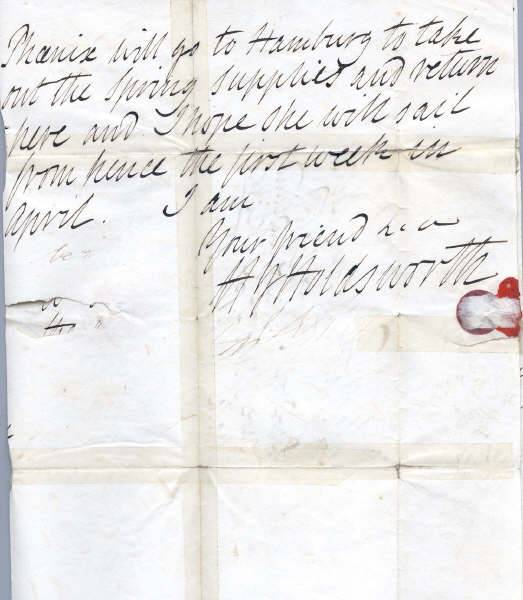 Phœnix will go to Hamburg to take
out the Spring supplies and return
here and I hope she will sail
from hence the first week in
April. I am
Your friend &c a
Holdsworth